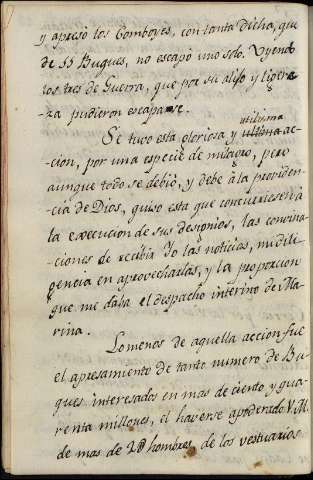 y apresó los Comboyes, con tanta Dicha, que
de 55 Buques, no escapó uno solo. Uyendo
los tres de Guerra, que por su aliso y ligere
-za pudieron escaparse.
Se tuvo esta gloriosa y utilisima ultima ac-
-cion, por una especie de milagro, pero
aunque todo se debió, y debe à la providen-
cia de Dios, quiso esta que concurriesen à
la execucion de sus designios, las convina-
-ciones de recibir Yo las noticias, mi dili-
gencia en aprovecharlas, y la proporcion
que me daba el despacho interino de Ma-
rina.
Lo menos de aquella accion fue
el apresamiento de tanto numero de Bu-
ques interesados en mas de ciento y qua-
renta millones, el haverse apoderado V.M.
de mas de hombres, de los vestuarios